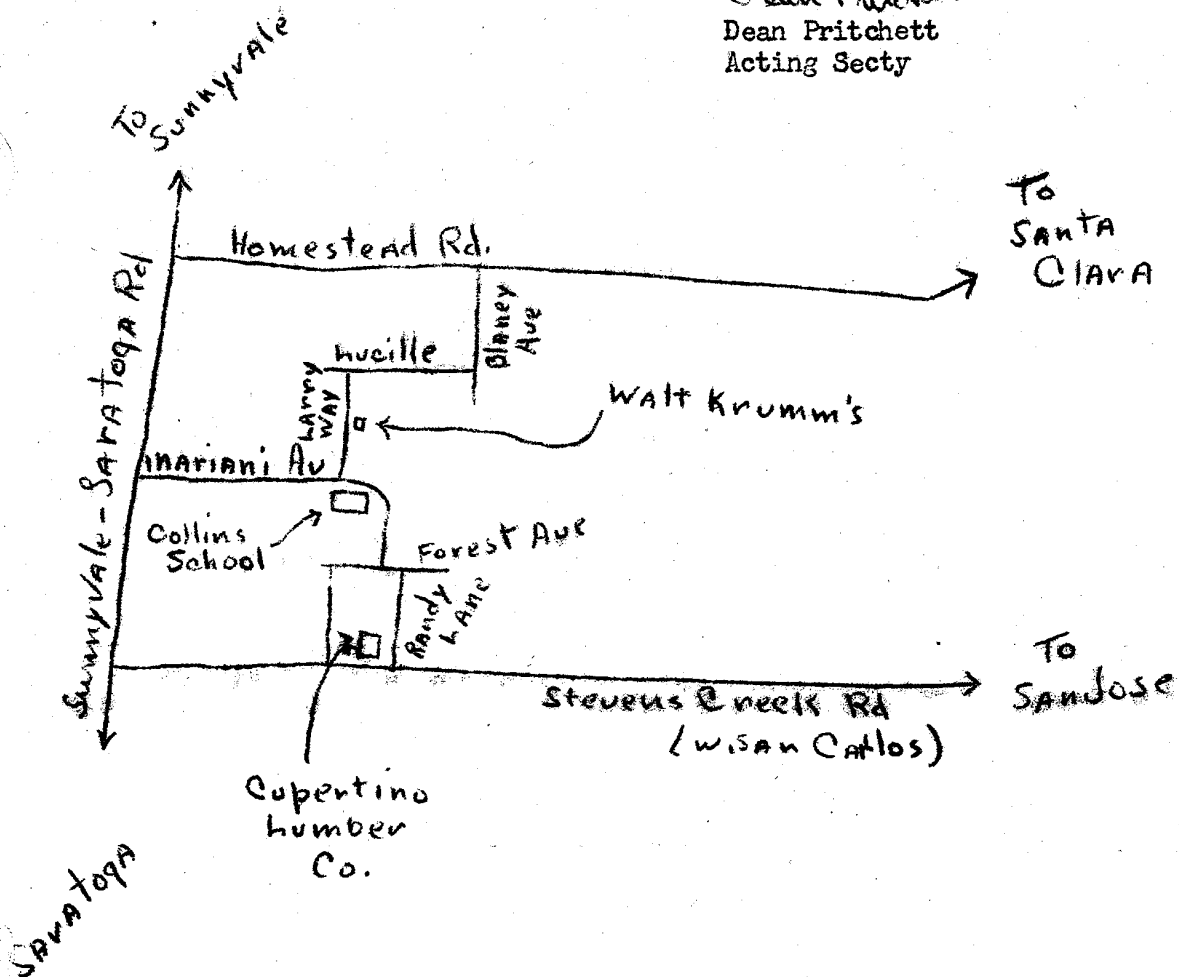 Dean Pritchett
Acting Secty
To
Sunnyvale
To
Santa
Clara
Homestead Rd.
Blaney
Ave
Lucille
Larry
Way
Walt Krumm's
Mariani Av
Sunnyvale - Saratoga Rd
Collins
School
Forest Ave
Randy
Lane
To
San Jose
Stevens Creek Rd
(W. San Carlos)
Cupertino
Lumber
Co.
Saratoga